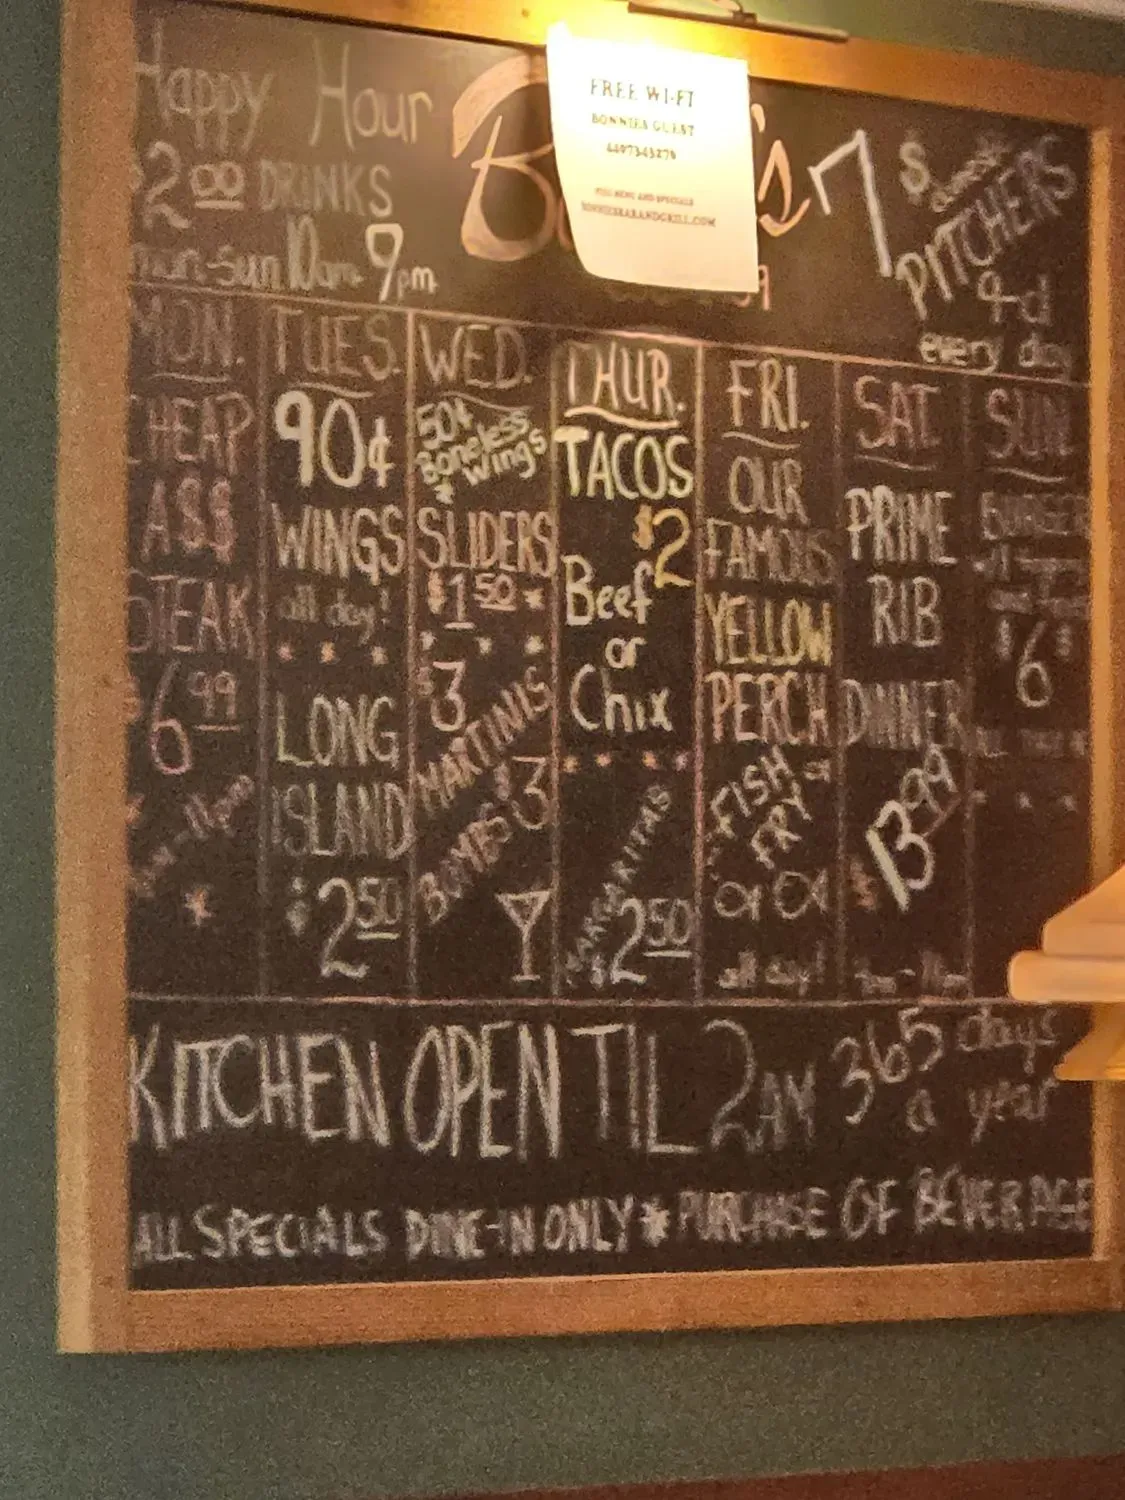 Happy Hour
$2.00 DRINKS
mon-sun 10am 9pm
FREE WI-FI
BONNIES GUEST
4497345276
FULL MENU AND SPECIALS
BONNIESBARANDGRILL.COM
7
$
PITCHERS
every day
MON.
CHEAP
ASS
STEAK
$6.99
TUES.
90¢
WINGS
all day!
LONG
ISLAND
$2.50
WED.
50¢
Boneless
Wings
SLIDERS
$1.50
$3
MARTINIS
BOMBS $3
THUR.
TACOS
$2
Beef
or
Chix
MARGARITAS
$2.50
FRI.
OUR
FAMOUS
YELLOW
PERCH
FISH
FRY
all day!
SAT.
PRIME
RIB
DINNER
$13.99
SUN.
BURGER
$6
KITCHEN OPEN TIL 2AM 365 days a year
ALL SPECIALS DINE-IN ONLY * PURCHASE OF BEVERAGE